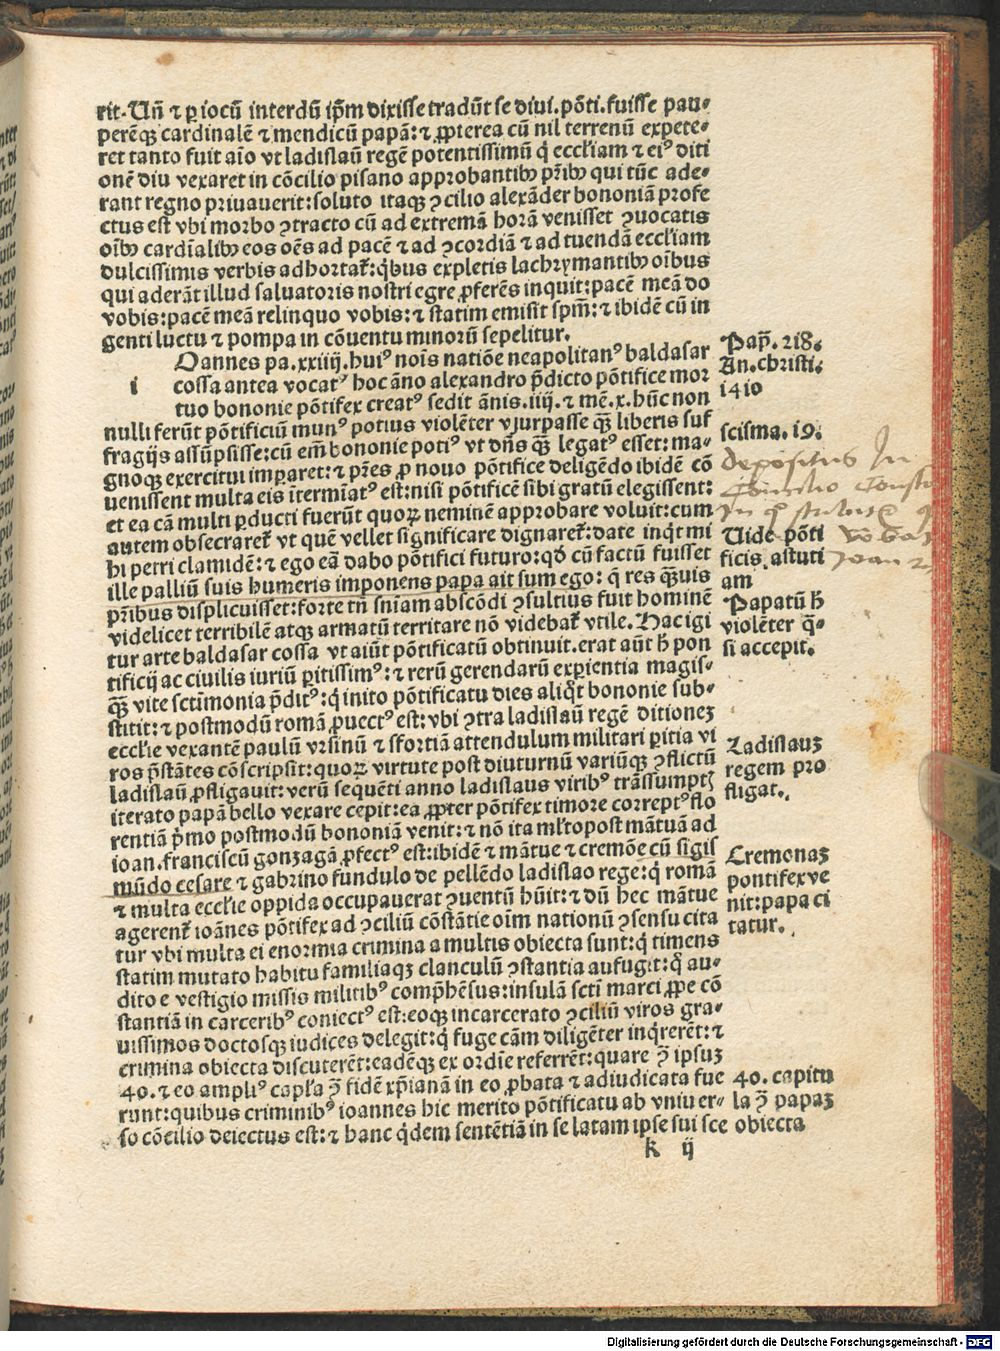 rit. Uñ ⁊ ꝑ iocũ interdũ ip̃m dixisse tradũt se diui. põti. fuisse pau⸗
perẽqꝫ cardinalẽ ⁊ mendicũ papã: ⁊ ꝓpterea cũ nil terrenũ expete⸗
ret tanto fuit aĩo vt ladislaũ regẽ potentissimũ q̇ eccľiam ⁊ eiꝰ diti
onẽ diu vexaret in cõcilio pisano approbantibꝰ pr̃ibꝰ qui tũc ade⸗
rant regno priuauerit: soluto itaqꝫ ꝯcilio alexãder bononiã profe
ctus est vbi morbo ꝯtracto cũ ad extremã horã venisset ꝯuocatis
oĩbꝰ cardĩalibꝰ eos oẽs ad pacẽ ⁊ ad ꝯcordiã ⁊ ad tuendã eccľiam
dulcissimis verbis adhortat̃: q̇bus expletis lachrymantibꝰ oĩbus
qui aderãt illud saluatoris nostri egre ꝓferẽs inquit: pacẽ meã do
vobis: pacẽ meã relinquo vobis: ⁊ statim emisit sp̃m: ⁊ ibidẽ cũ in
genti luctu ⁊ pompa in cõuentu minorũ sepelitur.
i Oannes pa. xxiiij. huiꝰ noĩs natiõe neapolitanꝰ baldasar
cossa antea vocatꝰ hoc ãno alexandro p̃dicto põtifice mor
tuo bononie põtifex creatꝰ sedit ãnis. iiij. ⁊ mẽ. x. hũc non
nulli ferũt põtificiũ munꝰ potius violẽter vsurpasse qꝫ̃ liberis suf
fragijs assũpsisse: cũ em̃ bononie potiꝰ vt dñs qꝫ̃ legatꝰ esset: ma⸗
gnoqꝫ exercitui imꝑaret: ⁊ pr̃es ꝓ nouo põtifice deligẽdo ibidẽ cõ
uenissent multa eis ĩtermĩatꝰ est: nisi põtificẽ sibi gratũ elegissent:
et ea cã multi ꝑducti fuerũt quoꝝ neminẽ approbare voluit: cum
autem obsecraret̃ vt quẽ vellet significare dignaret̃: date inq̇t mi
hi petri clamidẽ: ⁊ ego eã dabo põtifici futuro: qđ cũ factũ fuisset
ille palliũ suis humeris imponens papa ait sum ego: q̇ res qꝫ̃uis
pr̃ibus displicuisset: forte tñ sñiam abscõdi ꝯsultius fuit hominẽ
videlicet terribilẽ atqꝫ armatũ territare nõ videbat̃ vtile. Hac igi
tur arte baldasar cossa vt aiũt põtificatũ obtinuit. erat aũt ħ pon
tificij ac ciuilis iuriũ ꝑitissimꝰ: ⁊ rerũ gerendarũ exꝑientia magis⸗
qꝫ̃ vite sctĩmonia p̃ditꝰ: q̇ inito põtificatu dies aliq̇t bononie sub⸗
stitit: ⁊ postmodũ romã ꝓuectꝰ est: vbi ꝯtra ladislaũ regẽ ditionez
eccľie vexantẽ paulũ vrsinũ ⁊ sfortiã attendulum militari ꝑitia vi
ros p̃stãtes cõscripsit: quoꝝ virtute post diuturnũ variũqꝫ ꝯflictũ
ladislaũ ꝓfligauit: verũ sequẽti anno ladislaus viribꝰ trãssumptꝭ
iterato papã bello vexare cepit: ea ꝓpter põtifex timore correptꝰ flo
rentiã p̃mo postmodũ bononiã venit: ⁊ nõ ita mľto post mãtuã ad
ioan. franciscũ gonzagã ꝓfectꝰ est: ibidẽ ⁊ mãtue ⁊ cremõe cũ sigis
mũdo cesare ⁊ gabrino fundulo de pellẽdo ladislao rege: q̇ romã
⁊ multa eccľie oppida occupauerat ꝯuentũ hũit: ⁊ dũ hec mãtue
agerent̃ ioãnes põtifex ad ꝯciliũ cõstãtie oĩm nationũ ꝯsensu cita
tur vbi multa ei enormia crimina a multis obiecta sunt: q̇ timens
statim mutato habitu familiaqꝫ clanculũ ꝯstantia aufugit: q̇ au⸗
dito e vestigio missis militibꝰ comp̃hẽsus: insulã sctĩ marci ꝓpe cõ
stantiã in carceribꝰ coniectꝰ est: eoqꝫ incarcerato ꝯciliũ viros gra⸗
uissimos doctosqꝫ iudices delegit: q̇ fuge cãm diligẽter inq̇rerẽt: ⁊
crimina obiecta discuterẽt: eadẽqꝫ ex ordĩe referrẽt: quare ꝯ̃ ipsuꝫ
40. ⁊ eo ampliꝰ capľa ꝯ̃ fidẽ xp̃ianã in eo ꝓbata ⁊ adiudicata fue
runt: quibus criminibꝰ ioannes hic merito põtificatu ab vniuer⸗
so cõcilio deiectus est: ⁊ hanc q̇dem sentẽtiã in se latam ipse sui sce
k ij
Pap̃. 218.
An. christi.
1410
scisma. 19.
depositus In
Concilio Consta
Uide põti
ficis astuti
am
Papatũ ħ
violẽter q̃⸗
si accepit.
Ladislauꝫ
regem pro
fligat.
Cremonaꝫ
pontifex ve
nit: papa ci
tatur.
40. capitu
la ꝯ̃ papaꝫ
obiecta
Digitalisierung gefördert durch die Deutsche Forschungsgemeinschaft - DFG